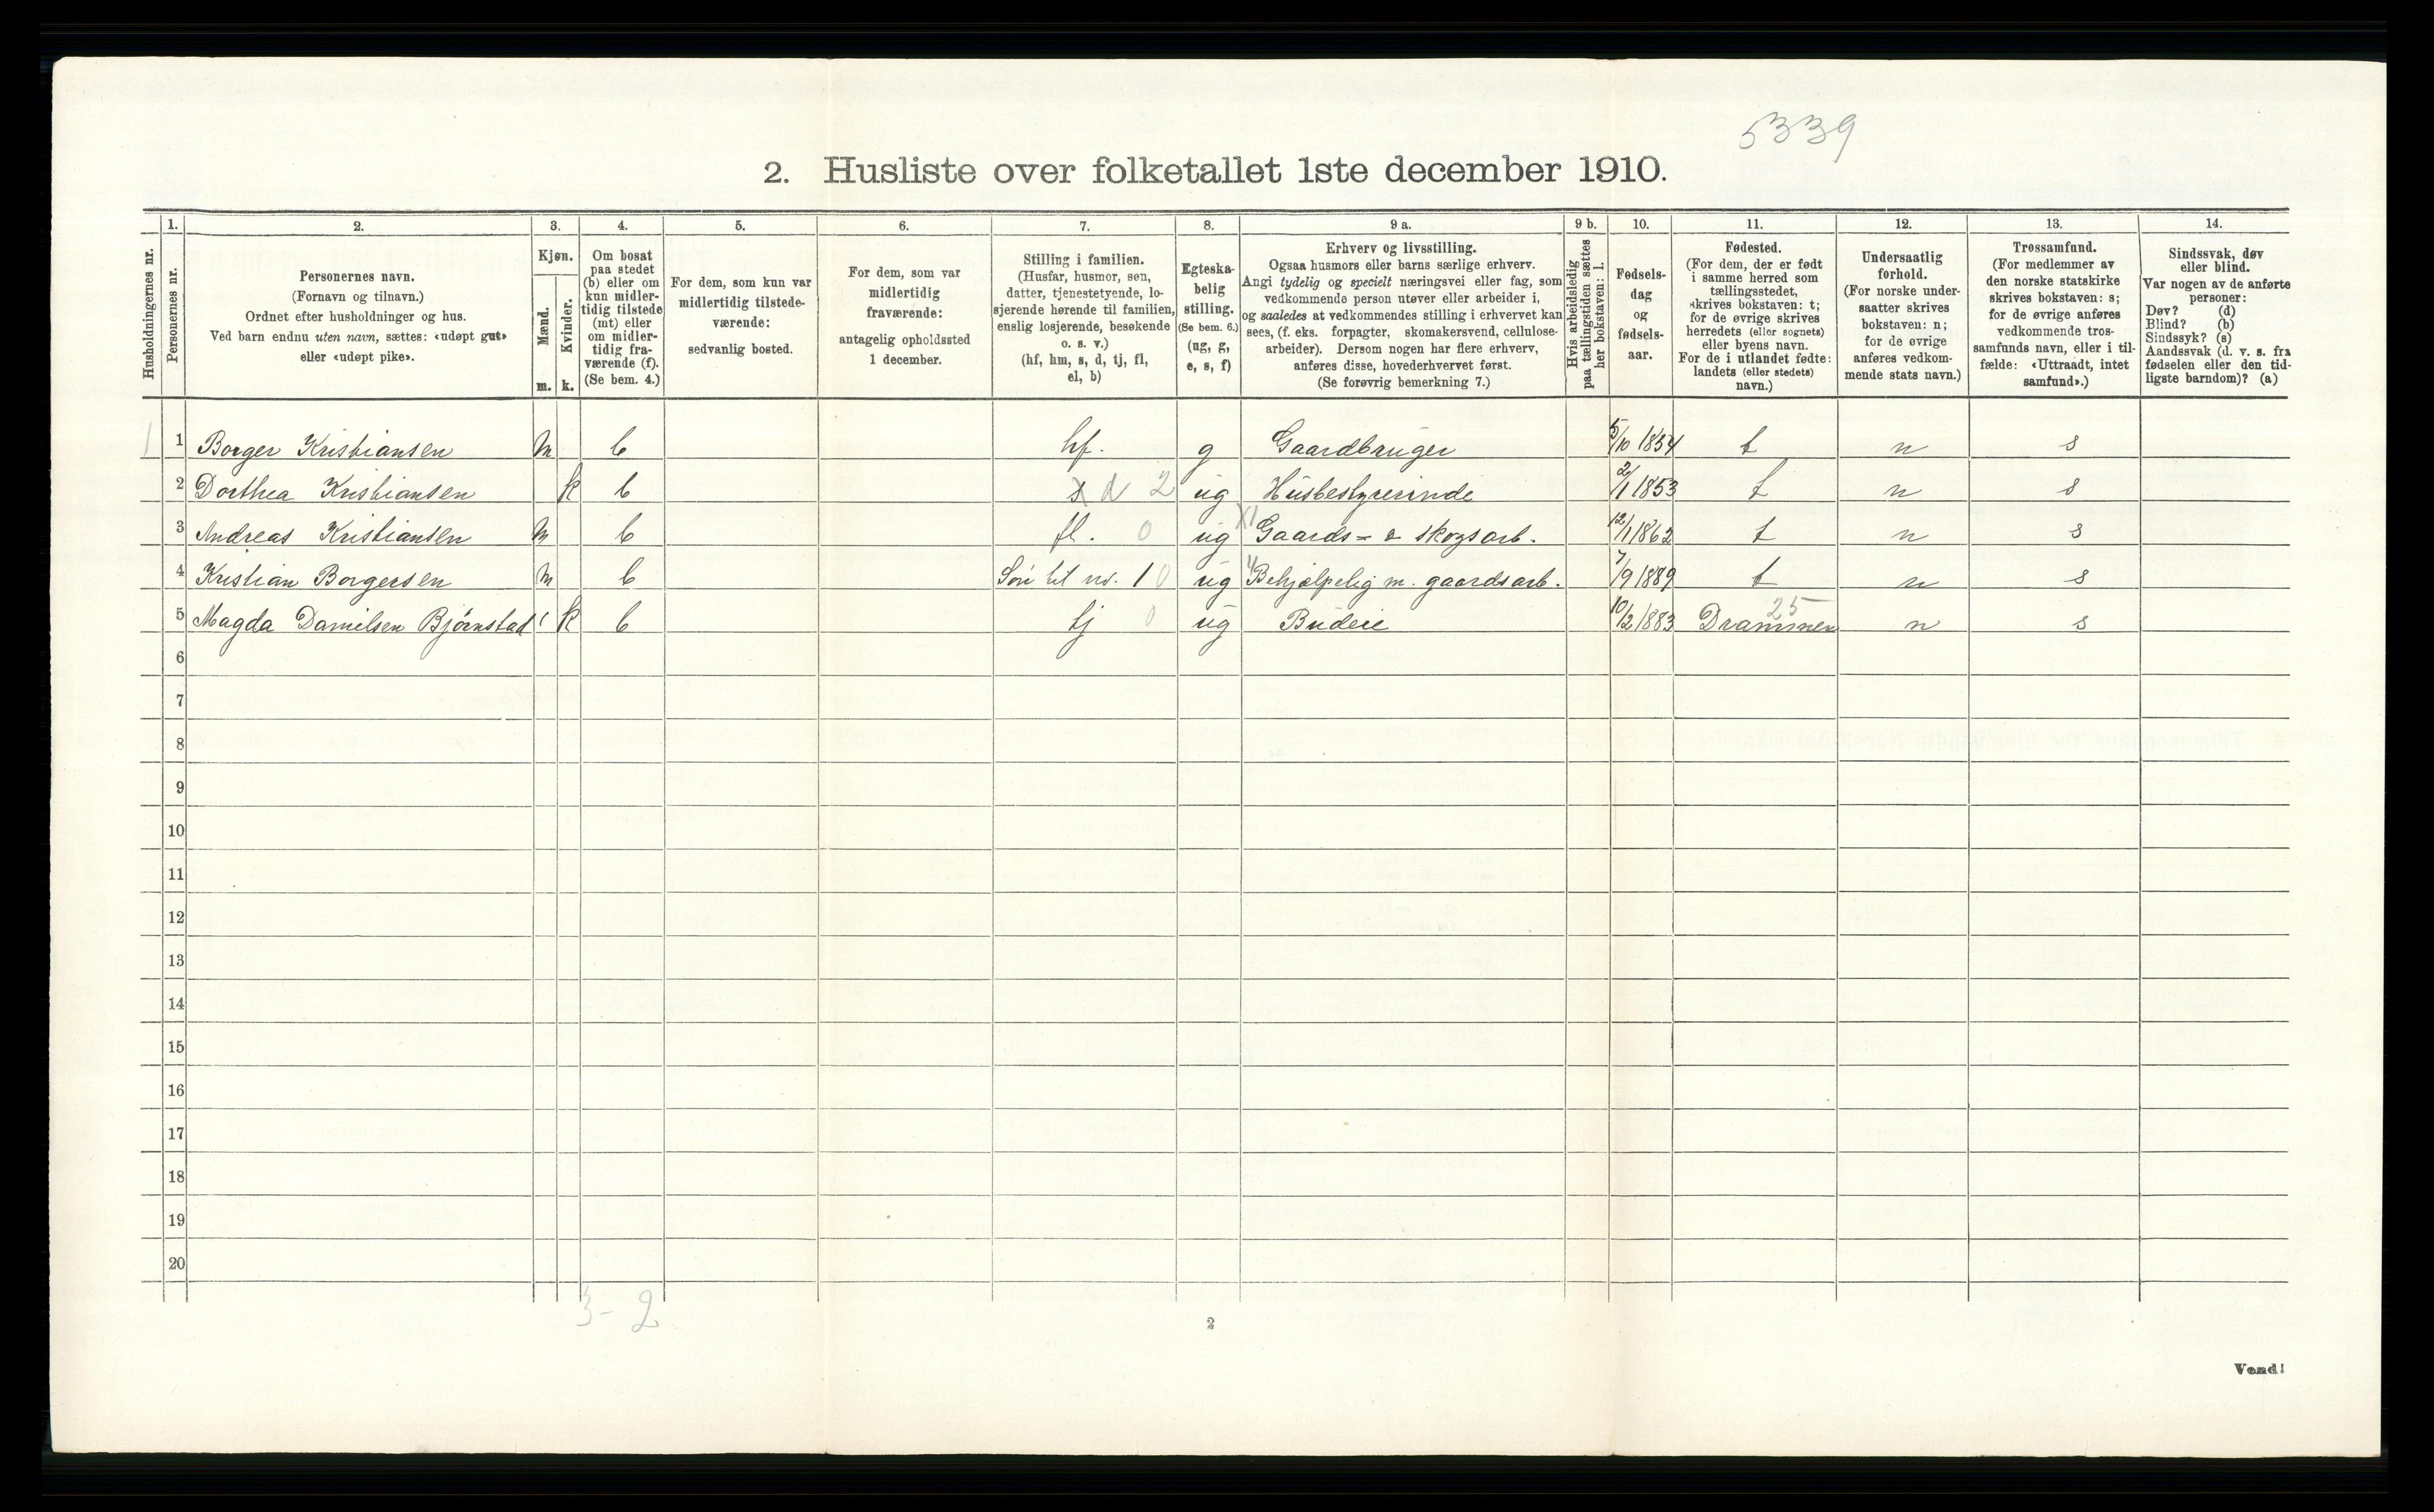 5339
2. Husliste over folketallet 1ste december 1910.
Husholdningernes nr.
1.
Personernes nr.
2.
Personernes navn.
(Fornavn og tilnavn.)
Ordnet efter husholdninger og hus.
Ved barn endnu uten navn, sættes: «udøpt gut»
eller «udøpt pike».
3.
Kjøn.
Mænd.
Kvinder.
m. k.
4.
Om bosat
paa stedet
(b) eller om
kun midler-
tidig tilstede
(mt) eller
om midler-
tidig fra-
værende (f).
(Se bem. 4.)
5.
For dem, som kun var
midlertidig tilstede-
værende:
sedvanlig bosted.
6.
For dem, som var
midlertidig
fraværende:
antagelig opholdssted
1 december.
7.
Stilling i familien.
(Husfar, husmor, søn,
datter, tjenestetyende, lo-
sjerende hørende til familien,
enslig losjerende, besøkende
o. s. v.)
(hf, hm, s, d, tj, fl,
el, b)
8.
Egteska-
belig
stilling.
(Se bem. 6.)
(ug, g,
e, s, f)
9 a.
Erhverv og livsstilling.
Ogsaa husmors eller barns særlige erhverv.
Angi tydelig og specielt næringsvei eller fag, som
vedkommende person utøver eller arbeider i,
og saaledes at vedkommendes stilling i erhvervet kan
sees, (f. eks. forpagter, skomakersvend, cellulose-
arbeider). Dersom nogen har flere erhverv,
anføres disse, hovederhvervet først.
(Se forøvrig bemerkning 7.)
9 b.
Hvis arbeidsledig
paa tællingstiden sættes
her bokstaven: l.
10.
Fødsels-
dag
og
fødsels-
aar.
11.
Fødested.
(For dem, der er født
i samme herred som
tællingsstedet,
skrives bokstaven: t;
for de øvrige skrives
herredets (eller sognets)
eller byens navn.
For de i utlandet fødte:
landets (eller stedets)
navn.)
12.
Undersaatlig
forhold.
(For norske under-
saatter skrives
bokstaven: n;
for de øvrige
anføres vedkom-
mende stats navn.)
13.
Trossamfund.
(For medlemmer av
den norske statskirke
skrives bokstaven: s;
for de øvrige anføres
vedkommende tros-
samfunds navn, eller i til-
fælde: «Uttraadt, intet
samfund».)
14.
Sindssvak, døv
eller blind.
Var nogen av de anførte
personer:
Døv? (d)
Blind? (b)
Sindssyk? (s)
Aandssvak (d. v. s. fra
fødselen eller den tid-
ligste barndom)? (a)
1 1 Borger Kristiansen m b hf. g Gaardbruger 5/10 1854 t n s
2 Dorthea Kristiansen k b s d 2 ug Husbestyrerinde 2/1 1853 t n s
3 Andreas Kristiansen m b fl. 0 ug Gaards- & skogsarb. 12/1 1862 t n s
4 Kristian Borgersen m b Søn til nr. 1 0 ug Behjælpelig m. gaardsarb. 7/9 1889 t n s
5 Magda Danielsen Bjørnstad k b tj 0 ug Budeie 10/2 1883 Drammen 25 n s
6
7
8
9
10
11
12
13
14
15
16
17
18
19
20
3 - 2
2
Vend!